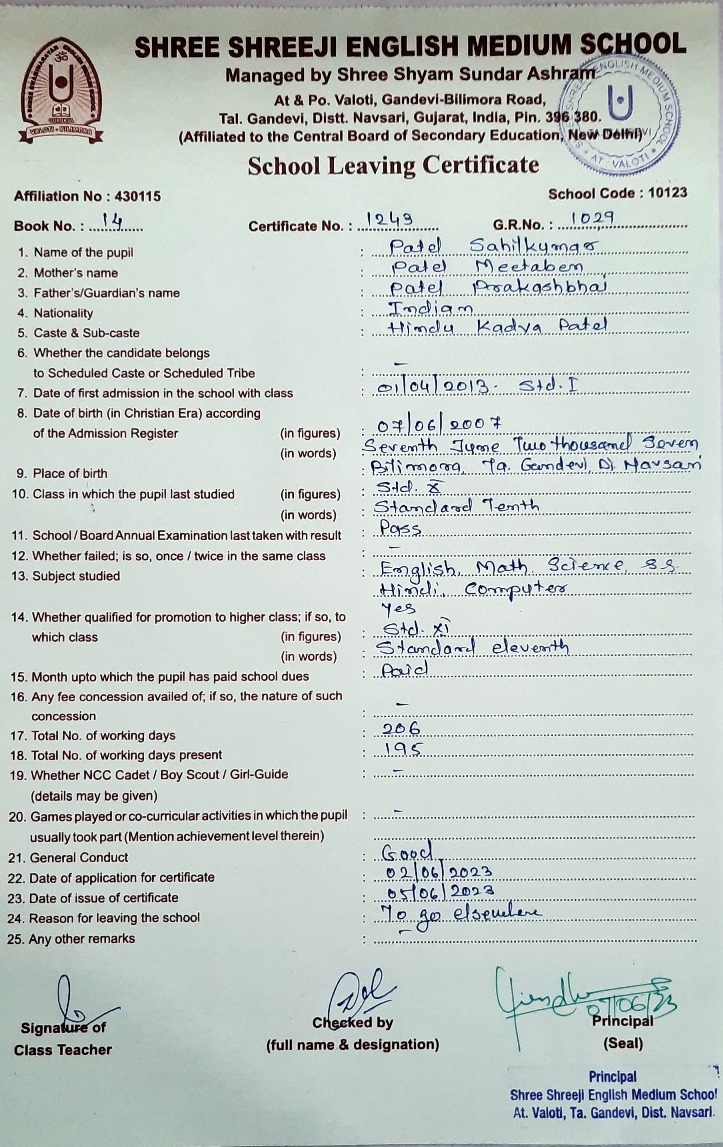 SHREE SHREEJI ENGLISH MEDIUM SCHOOL
Managed by Shree Shyam Sundar Ashram
At & Po. Valoti, Gandevi-Bilimora Road,
Tal. Gandevi, Distt. Navsari, Gujarat, India, Pin. 396 380.
(Affiliated to the Central Board of Secondary Education, New Delhi)
VALOTI - BILIMORA
School Leaving Certificate
Affiliation No : 430115 School Code : 10123
Book No. : 14 Certificate No. : 1243 G.R.No. : 1029
1. Name of the pupil : Patel Sahilkumar
2. Mother's name : Patel Meetaben
3. Father's/Guardian's name : Patel Prakashbhai
4. Nationality : Indian
5. Caste & Sub-caste : Hindu Kadva Patel
6. Whether the candidate belongs
to Scheduled Caste or Scheduled Tribe : –
7. Date of first admission in the school with class : 01/04/2013. Std. I
8. Date of birth (in Christian Era) according
of the Admission Register (in figures) : 07/06/2007
(in words) : Seventh June Two thousand Seven
9. Place of birth : Bilimora, Ta. Gandevi, Di Navsari
10. Class in which the pupil last studied (in figures) : Std. X
(in words) : Standard Tenth
11. School / Board Annual Examination last taken with result : Pass
12. Whether failed; is so, once / twice in the same class : –
13. Subject studied : English, Math Science, S.S.
Hindi, Computer
14. Whether qualified for promotion to higher class; if so, to : Yes
which class (in figures) : Std. XI
(in words) : Standard eleventh
15. Month upto which the pupil has paid school dues : Paid
16. Any fee concession availed of; if so, the nature of such
concession : –
17. Total No. of working days : 206
18. Total No. of working days present : 195
19. Whether NCC Cadet / Boy Scout / Girl-Guide : –
(details may be given)
20. Games played or co-curricular activities in which the pupil : –
usually took part (Mention achievement level therein)
21. General Conduct : Good
22. Date of application for certificate : 02/06/2023
23. Date of issue of certificate : 05/06/2023
24. Reason for leaving the school : To go elsewhere
25. Any other remarks : –
07/06/23
Signature of Checked by Principal
Class Teacher (full name & designation) (Seal)
Principal
Shree Shreeji English Medium School
At. Valoti, Ta. Gandevi, Dist. Navsari.